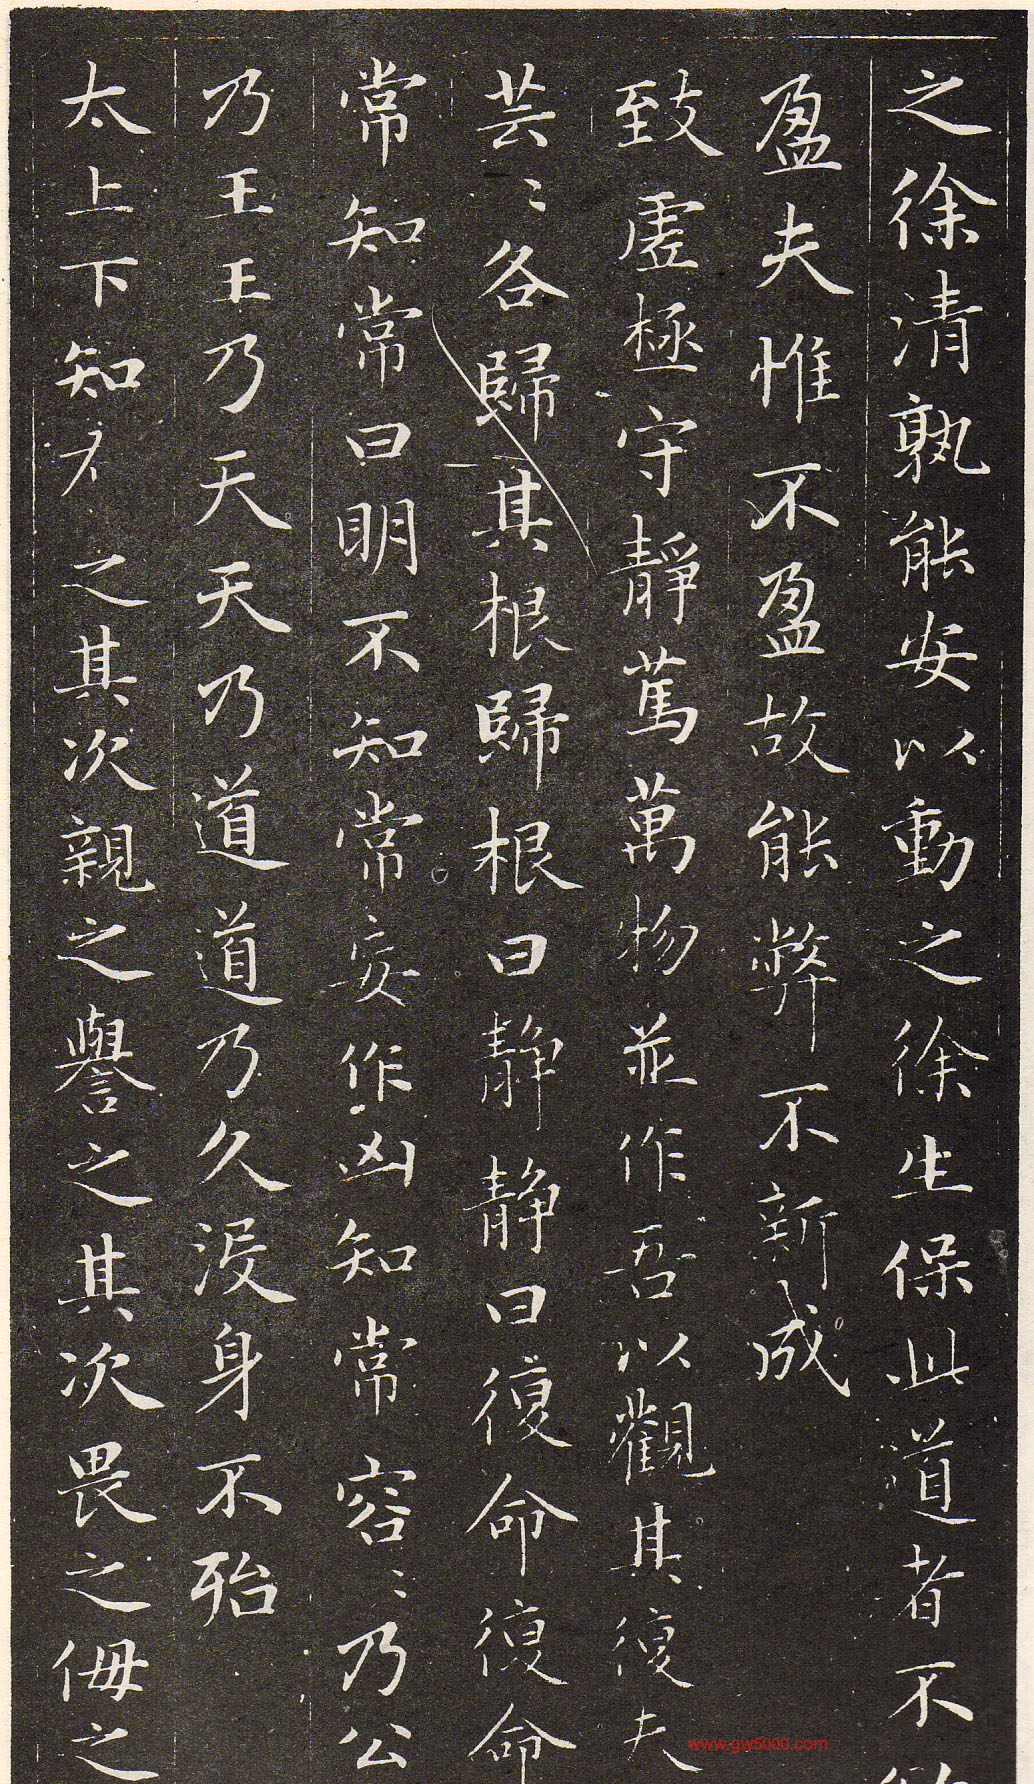 之徐清孰能安以動之徐生保此道者不欲
盈夫惟不盈故能弊不新成
致虛極守靜篤萬物並作吾以觀其復夫
芸〻各歸其根歸根曰靜靜曰復命復命
常知常曰明不知常妄作凶知常容〻乃公
乃王王乃天天乃道道乃久沒身不殆
太上下知有之其次親之譽之其次畏之侮之
www.gw5000.com